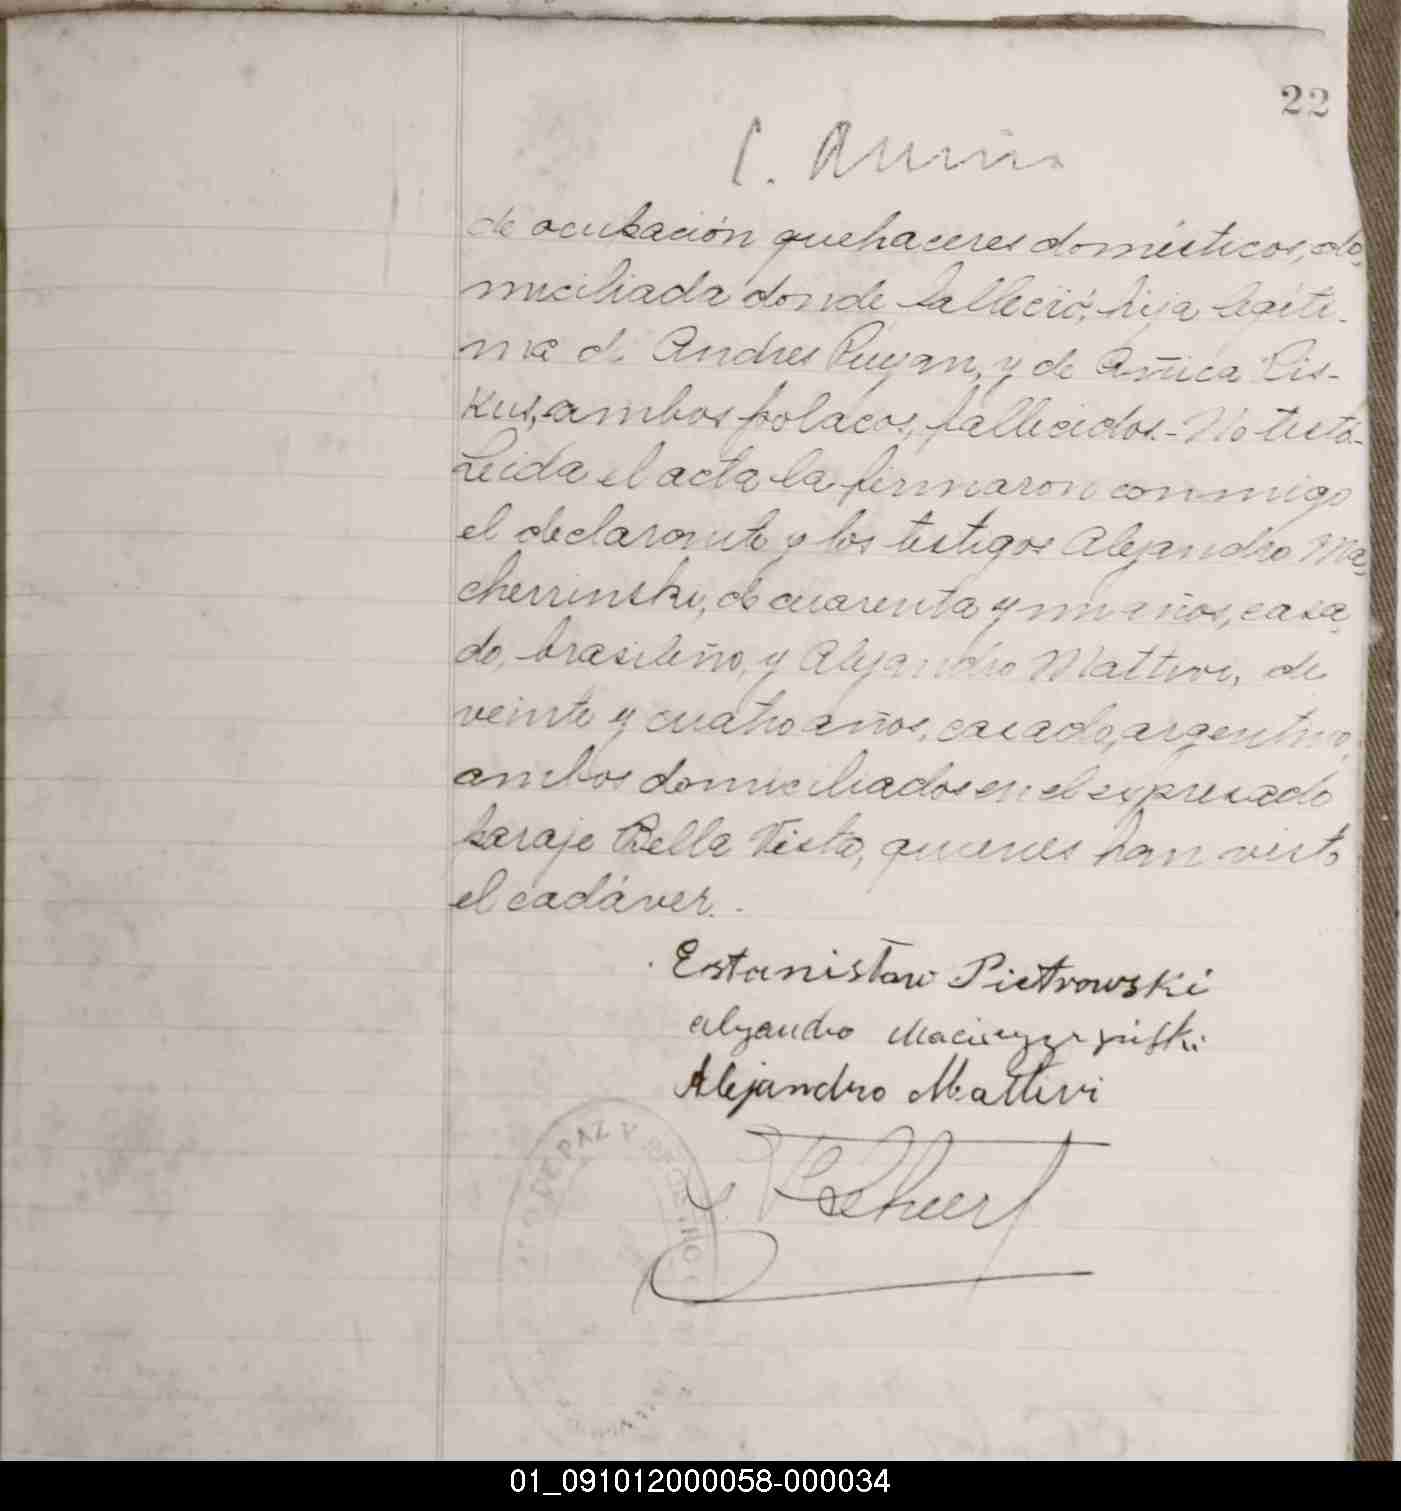 22
de ocupación quehaceres domésticos, do-
miciliada donde falleció, hija legíti-
ma de Andres Puyan, y de Añica Cis-
kus, ambos polacos, fallecidos.- No testó.-
Leida el acta la firmaron conmigo
el declarante y los testigos Alejandro Ma-
cherrinsky, de cuarenta y un años, casa-
do, brasileño, y Alejandro Mattivi, de
veinte y cuatro años, casado, argentino,
ambos domiciliados en el expresado
paraje Bella Vista, quienes han visto
el cadáver.
Estanislaw Pietrowski
Alejandro
Alejandro Mattivi
DE PAZ Y
01_091012000058-000034